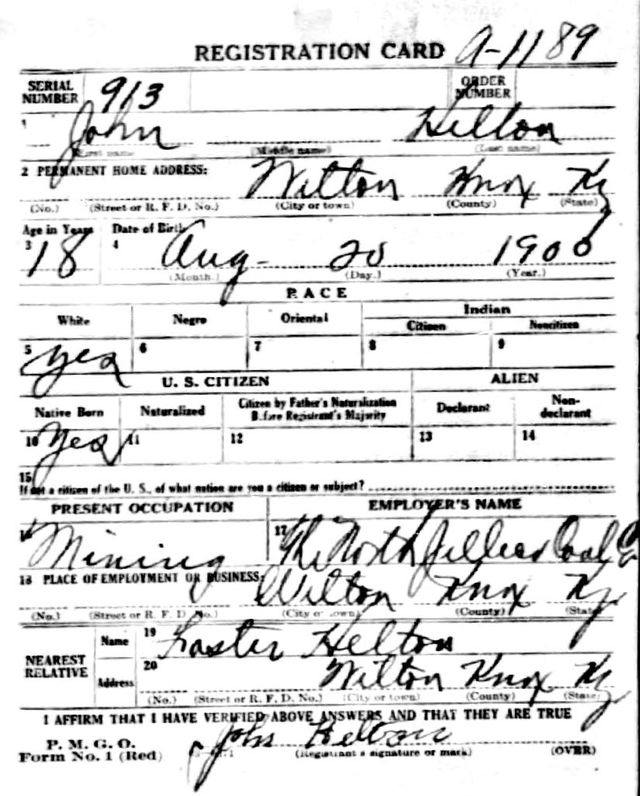 REGISTRATION CARD A-1189
SERIAL NUMBER 913 ORDER NUMBER
1 John Helton
(First name) (Middle name) (Last name)
2 PERMANENT HOME ADDRESS: Wilton Knox Ky
(No.) (Street or R. F. D. No.) (City or town) (County) (State)
Age in Years Date of Birth
3 18 4 Aug- 20 1900
(Month.) (Day.) (Year.)
RACE
White Negro Oriental Indian
Citizen Noncitizen
5 yes 6 7 8 9
U. S. CITIZEN ALIEN
Native Born Naturalized Citizen by Father's Naturalization Before Registrant's Majority Declarant Non-declarant
10 Yes 11 12 13 14
15
If not a citizen of the U. S., of what nation are you a citizen or subject?
PRESENT OCCUPATION EMPLOYER'S NAME
16 Mining 17 The North Jellico Coal Co
18 PLACE OF EMPLOYMENT OR BUSINESS: Wilton Knox Ky
(No.) (Street or R. F. D. No.) (City or town) (County) (State)
NEAREST RELATIVE Name 19 Helton
Address 20 Wilton Knox Ky
(No.) (Street or R. F. D. No.) (City or town) (County) (State)
I AFFIRM THAT I HAVE VERIFIED ABOVE ANSWERS AND THAT THEY ARE TRUE
P. M. G. O.
Form No. 1 (Red) John Helton
(Registrant's signature or mark) (OVER)